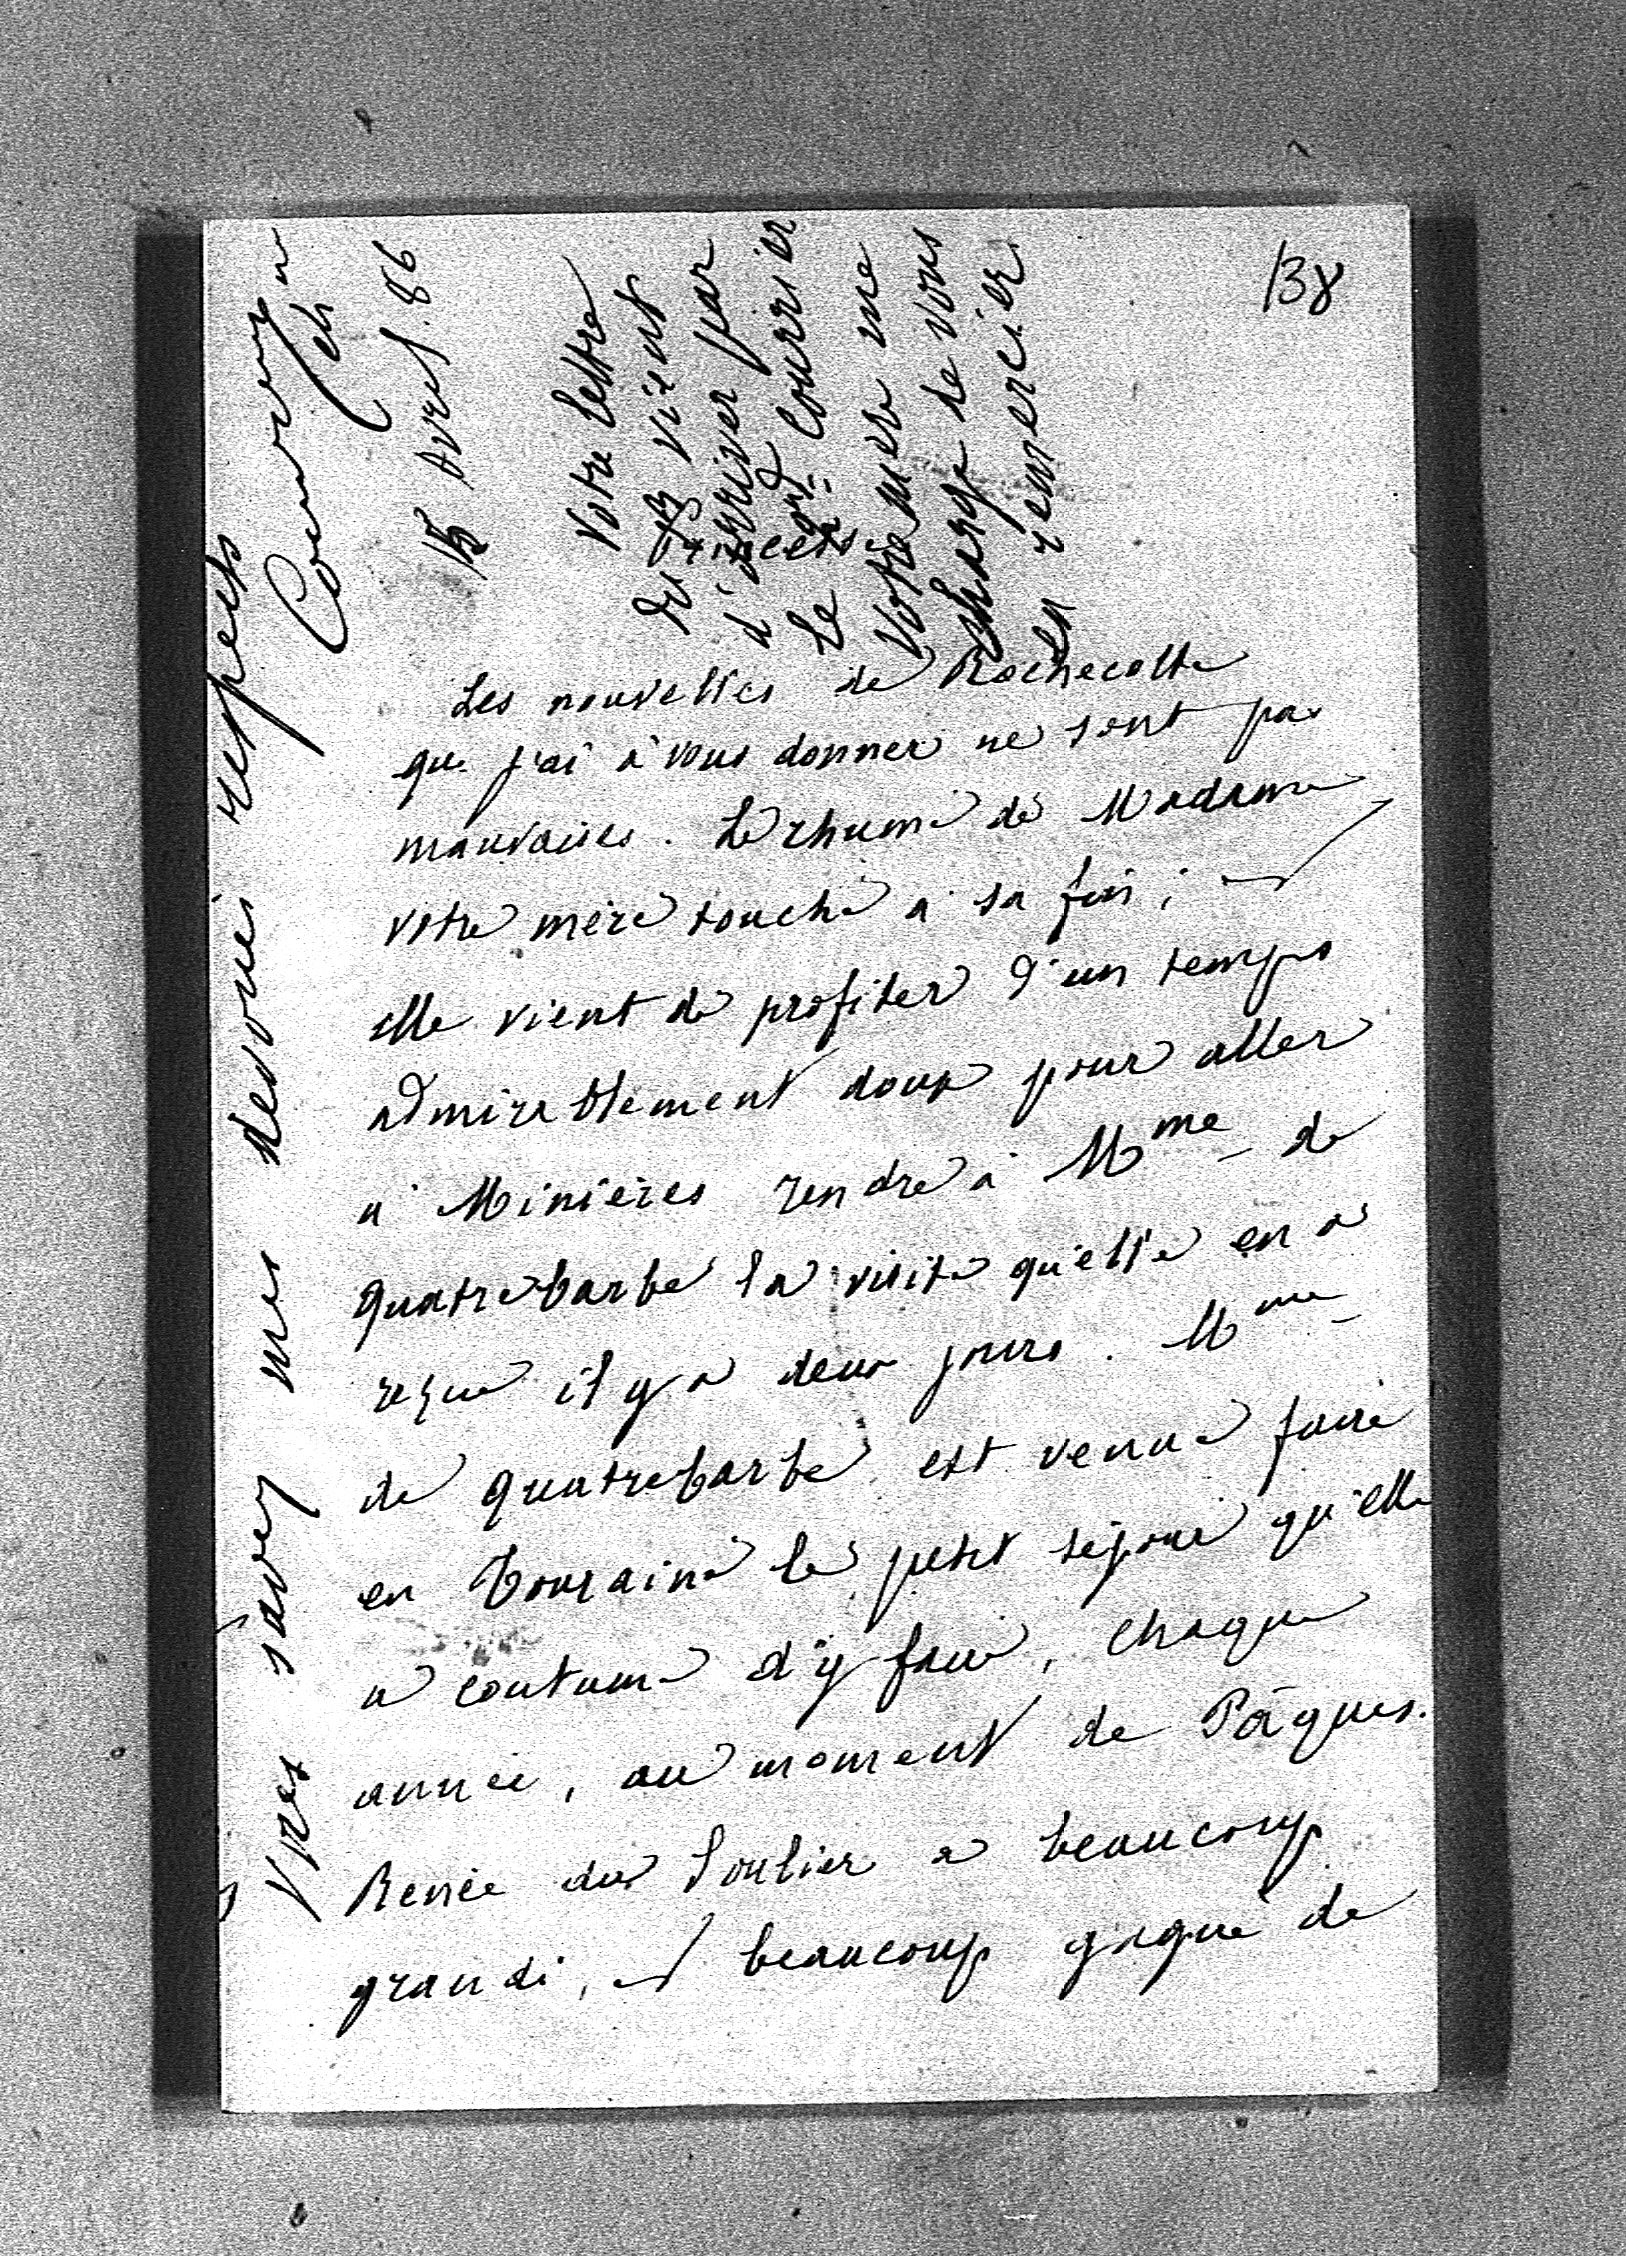 138
Les nouvelles de Rochecotte
que j'ai à vous donner ne sont pas
mauvaises. Le rhume de Madame
votre mère touche à sa fin ; et
elle vient de profiter d'un temps
admirablement doux pour aller
à Minières rendre à Mme de
Quatrebarbe la visite qu'elle en a
reçue il y a deux jours. Mme
de Quatrebarbe est venue faire
en Touraine le petit séjour qu'elle
a coutume d'y faire, chaque
année, au moment de Pâques.
Renée du Soulier a beaucoup
grandi, et beaucoup gagné de
Vous savez mes dévoués respects
15 Avril 86
Votre lettre
du vient
d'arriver par
le courrier
Votre mère me
charge de vous
en remercier.
Princesse